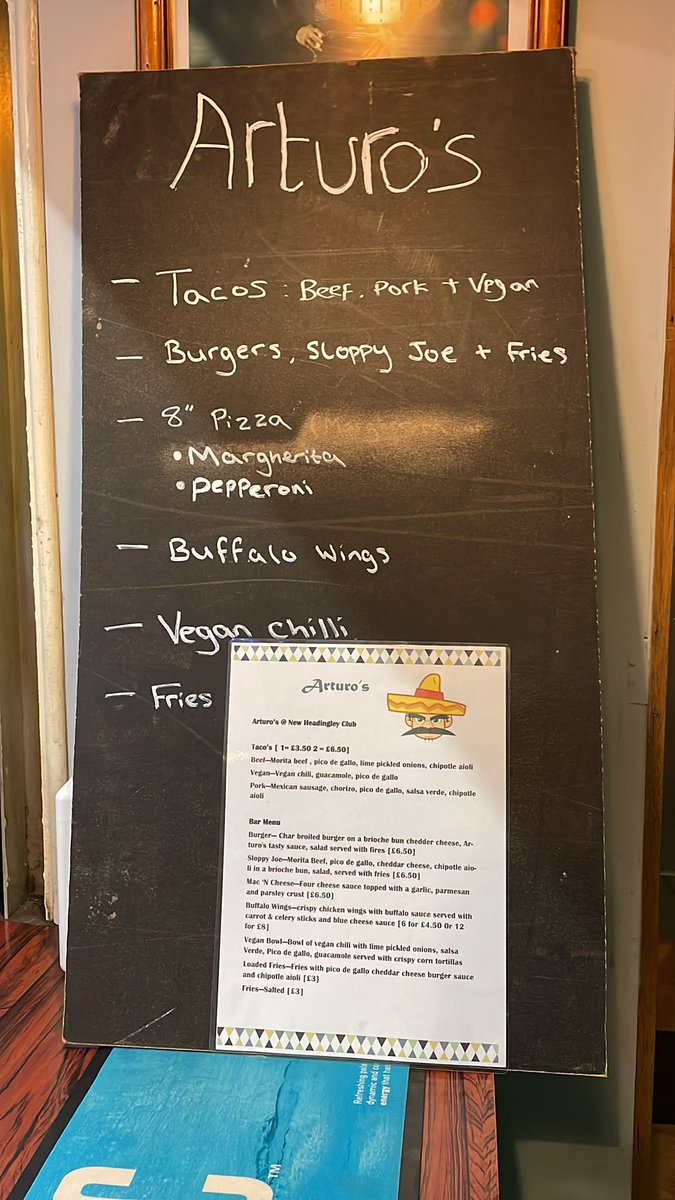 Arturo's
– Tacos : Beef. Pork + Vegan
– Burgers, Sloppy Joe + Fries
– 8" Pizza
• Margherita
• Pepperoni
– Buffalo Wings
– Vegan Chilli
– Fries
Arturo's
Arturo's @ New Headingley Club
Taco's [ 1= £3.50 2 = £6.50]
Beef—Morita beef , pico de gallo, lime pickled onions, chipotle aioli
Vegan—Vegan chili, guacamole, pico de gallo
Pork—Mexican sausage, chorizo, pico de gallo, salsa verde, chipotle
aioli
Bar Menu
Burger— Char broiled burger on a brioche bun chedder cheese, Ar-
turo's tasty sauce, salad served with fires [£6.50]
Sloppy Joe—Morita Beef, pico de gallo, cheddar cheese, chipotle aio-
li in a brioche bun, salad, served with fries [£6.50]
Mac 'N Cheese—Four cheese sauce topped with a garlic, parmesan
and parsley crust [£6.50]
Buffalo Wings—crispy chicken wings with buffalo sauce served with
carrot & celery sticks and blue cheese sauce [6 for £4.50 Or 12
for £8]
Vegan Bowl—Bowl of vegan chili with lime pickled onions, salsa
Verde, Pico de gallo, guacamole served with crispy corn tortillas
Loaded Fries—Fries with pico de gallo cheddar cheese burger sauce
and chipotle aioli [£3]
Fries—Salted [£3]
Refreshing
dynamic and
energy that has
TM